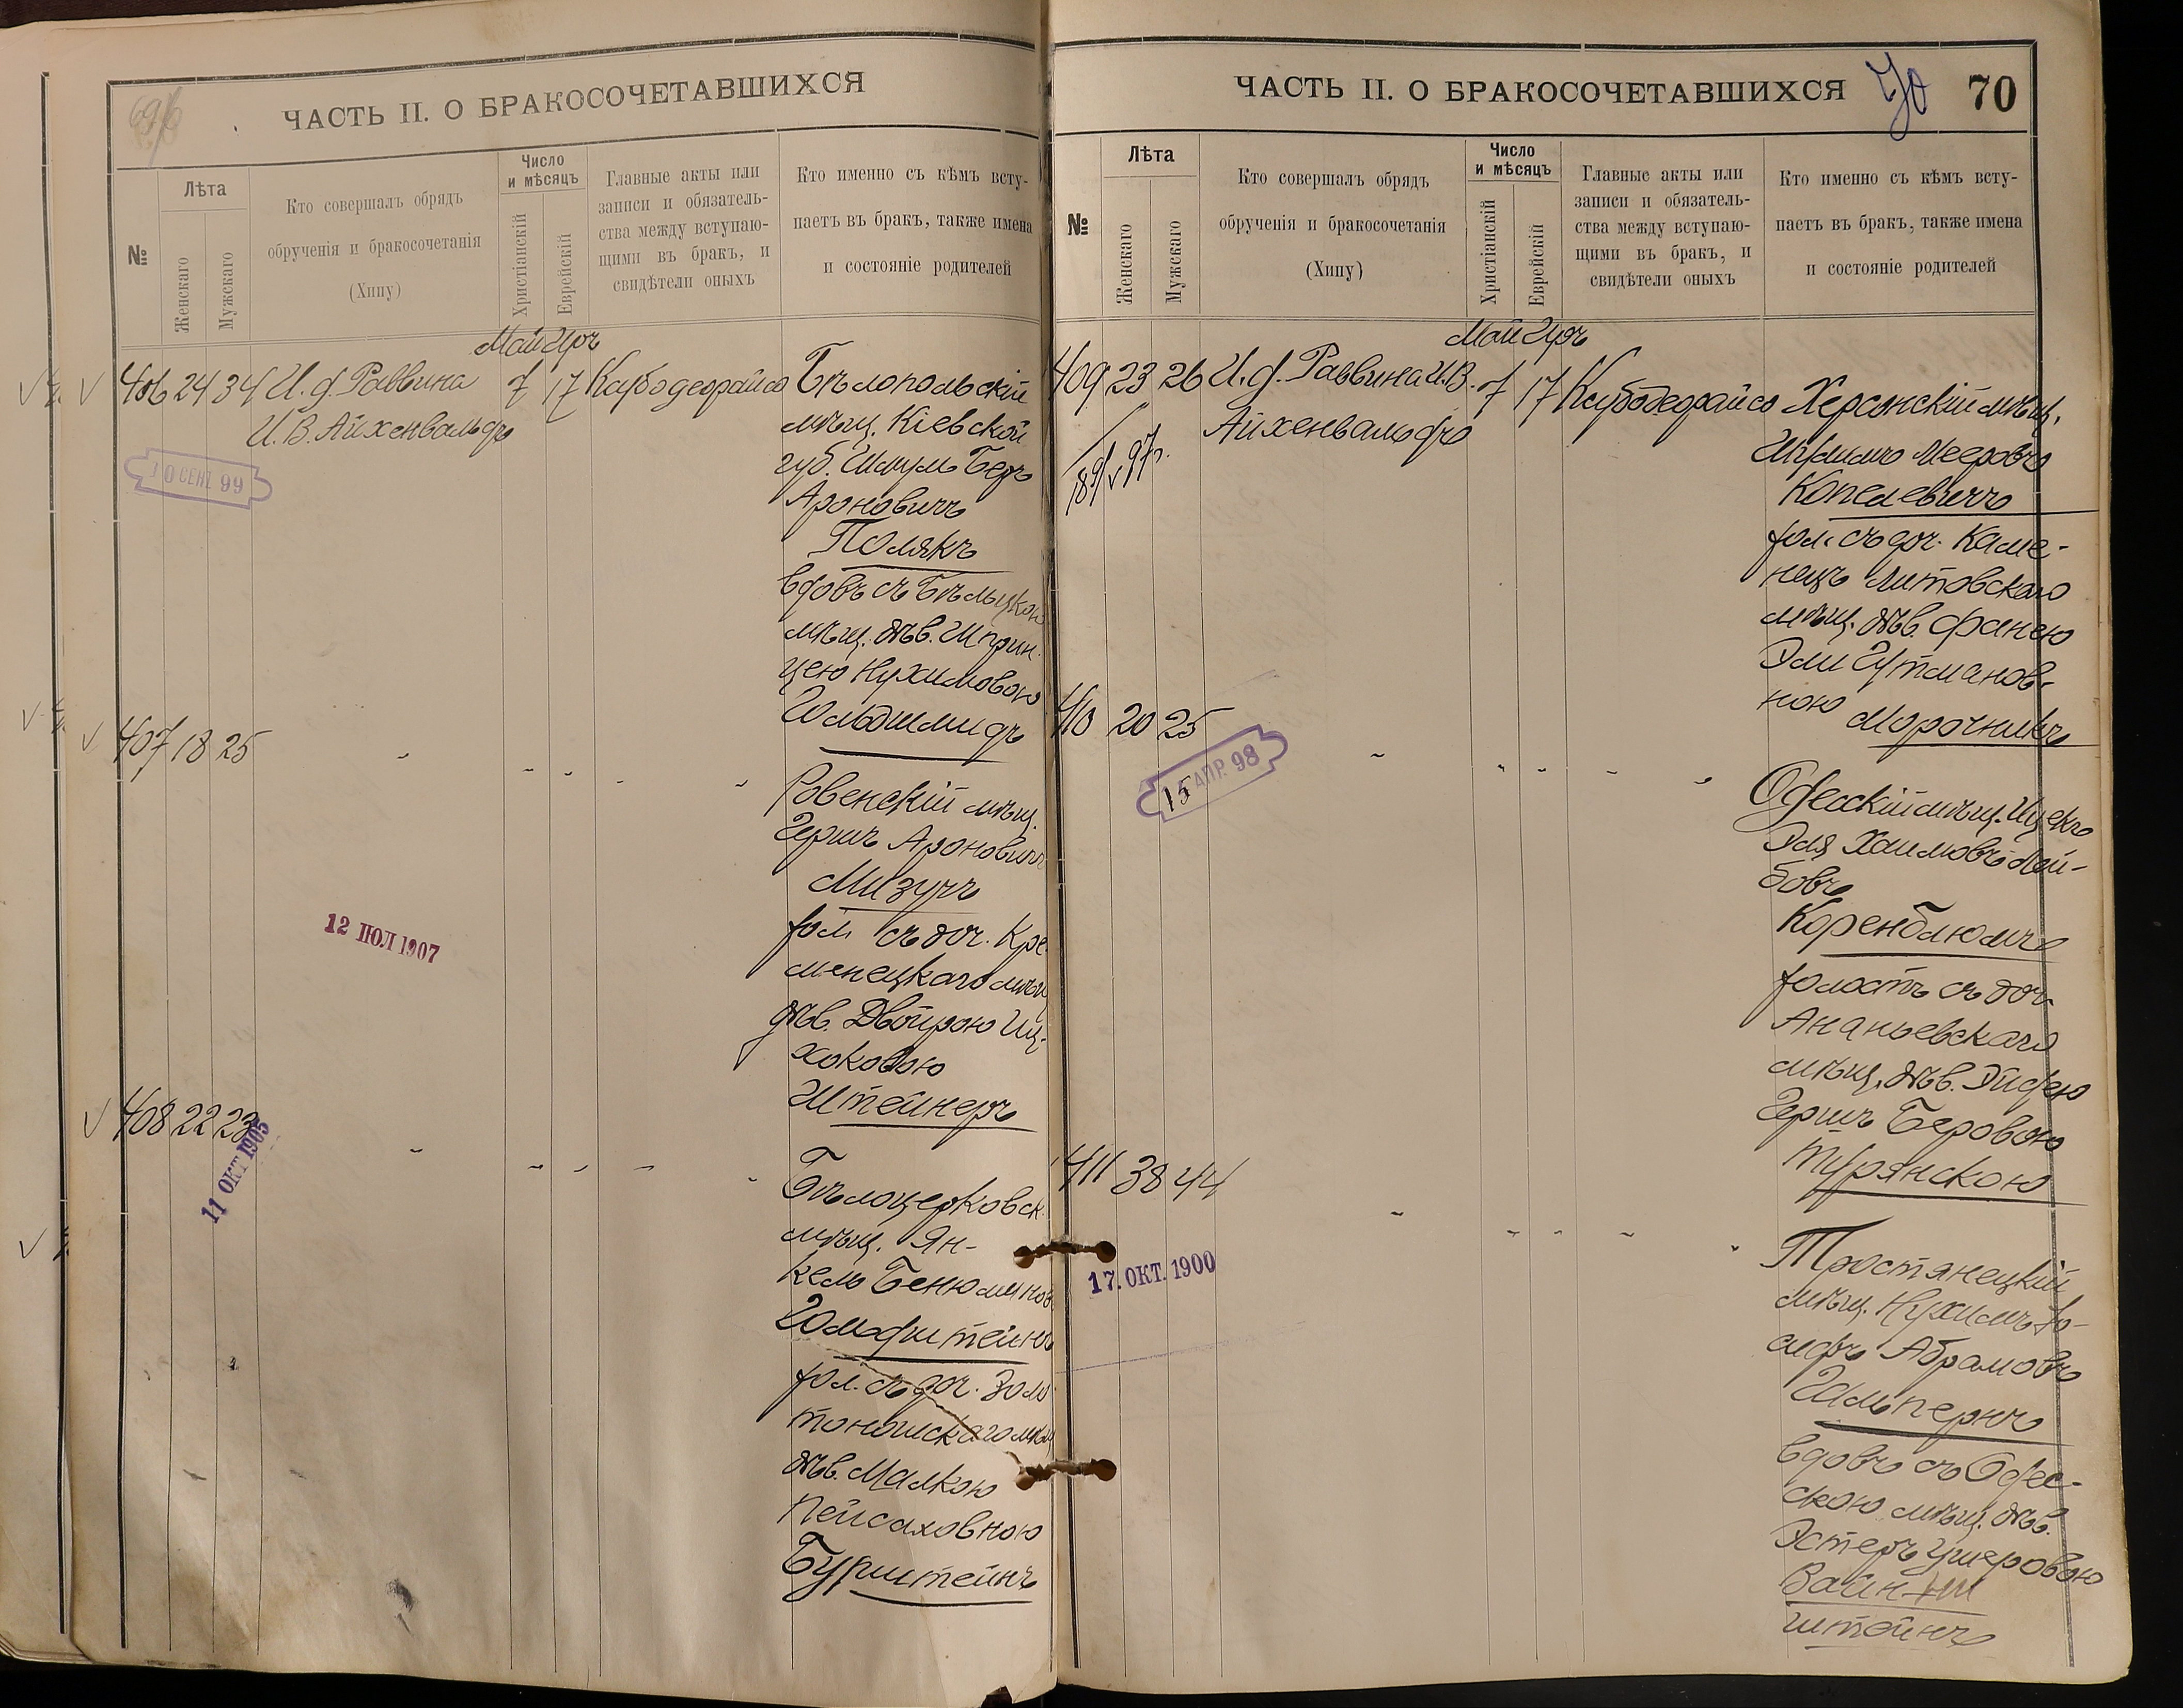 ЧАСТЬ II. О БРАКОСОЧЕТАВШИХСЯ
№
Лѣта
Женскаго
Мужскаго
Кто совершалъ обрядъ
обрученія и бракосочетанія
(Хипу)
Число
и мѣсяцъ
Христіанскій
Еврейскій
Главные акты или
записи и обязатель-
ства между вступаю-
щими въ бракъ, и
свидѣтели оныхъ
Кто именно съ кѣмъ всту-
паетъ въ бракъ, также имена
и состояніе родителей
Май Іяръ
406 24 34 И. д. Раввина 7 17 Каубодеорайсо Бѣлопольскій
И. В. Айхенвальдъ мѣщ. Кіевской
10 СЕН 99
губ. Шмуль Беръ
Ароновичъ
Полякъ
вдовъ съ Бѣльцкою
мѣщ. дѣв. Шприн-
цею Нухимовою
Гольдшмидъ
407 18 25
Ровенскій мѣщ.
Гершъ Ароновичъ
Мизучъ
12 ІЮЛ 1907
хол. съ доч. Кре-
менецкаго мѣщ
дѣв. Двойрою Иц-
хоковою
Штейнеръ
408 22 23
11 ОКТ 1905
Бѣлоцерковск.
мѣщ. Ян-
кель Бенюминов
Гольдштейнъ
хол. съ доч. Золо
тоношскаго мѣщ
дѣв. Малкою
Пейсаховною
Бурштейнъ
ЧАСТЬ II. О БРАКОСОЧЕТАВШИХСЯ 70 70
№
Лѣта
Женскаго
Мужскаго
Кто совершалъ обрядъ
обрученія и бракосочетанія
(Хипу)
Число
и мѣсяцъ
Христіанскій
Еврейскій
Главные акты или
записи и обязатель-
ства между вступаю-
щими въ бракъ, и
свидѣтели оныхъ
Кто именно съ кѣмъ всту-
паетъ въ бракъ, также имена
и состояніе родителей
Май Іяръ
409 23 26 И. д. Раввина И. В. 7 17 Каубодеорайсо Херсонскій мѣщ.
Айхенвальдъ
Шулимъ Мееровъ
Копелевичъ
хол. съ доч. Каме-
нецъ Литовскаго
мѣщ. дѣв. Фанею
Эли Гутманов-
ною Морочникъ
410 20 25
15 АПР. 98
Одесскій мѣщ. Ицекъ
Эля Хаимовъ-Лей-
бовъ
Коренблюмъ
холостъ съ доч.
Ананьевскаго
мѣщ. дѣв. Эйдею
Гершъ Беровою
Турянскою
411 38 44
17. ОКТ. 1900
Тростянецкій
мѣщ. Нухимъ Іо-
сифъ Абрамовъ
Гальпернъ
вдовъ съ Одес-
скою мѣщ. дѣв.
Эстеръ Ушеровою
Вайн-
штейнъ